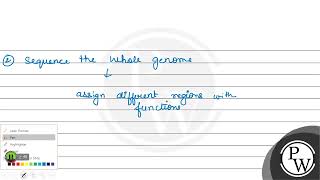 ② Sequence the whole genome
↓
assign different regions with
functions
P
W
Laser Pointer
Pen
Highlighter
P
W